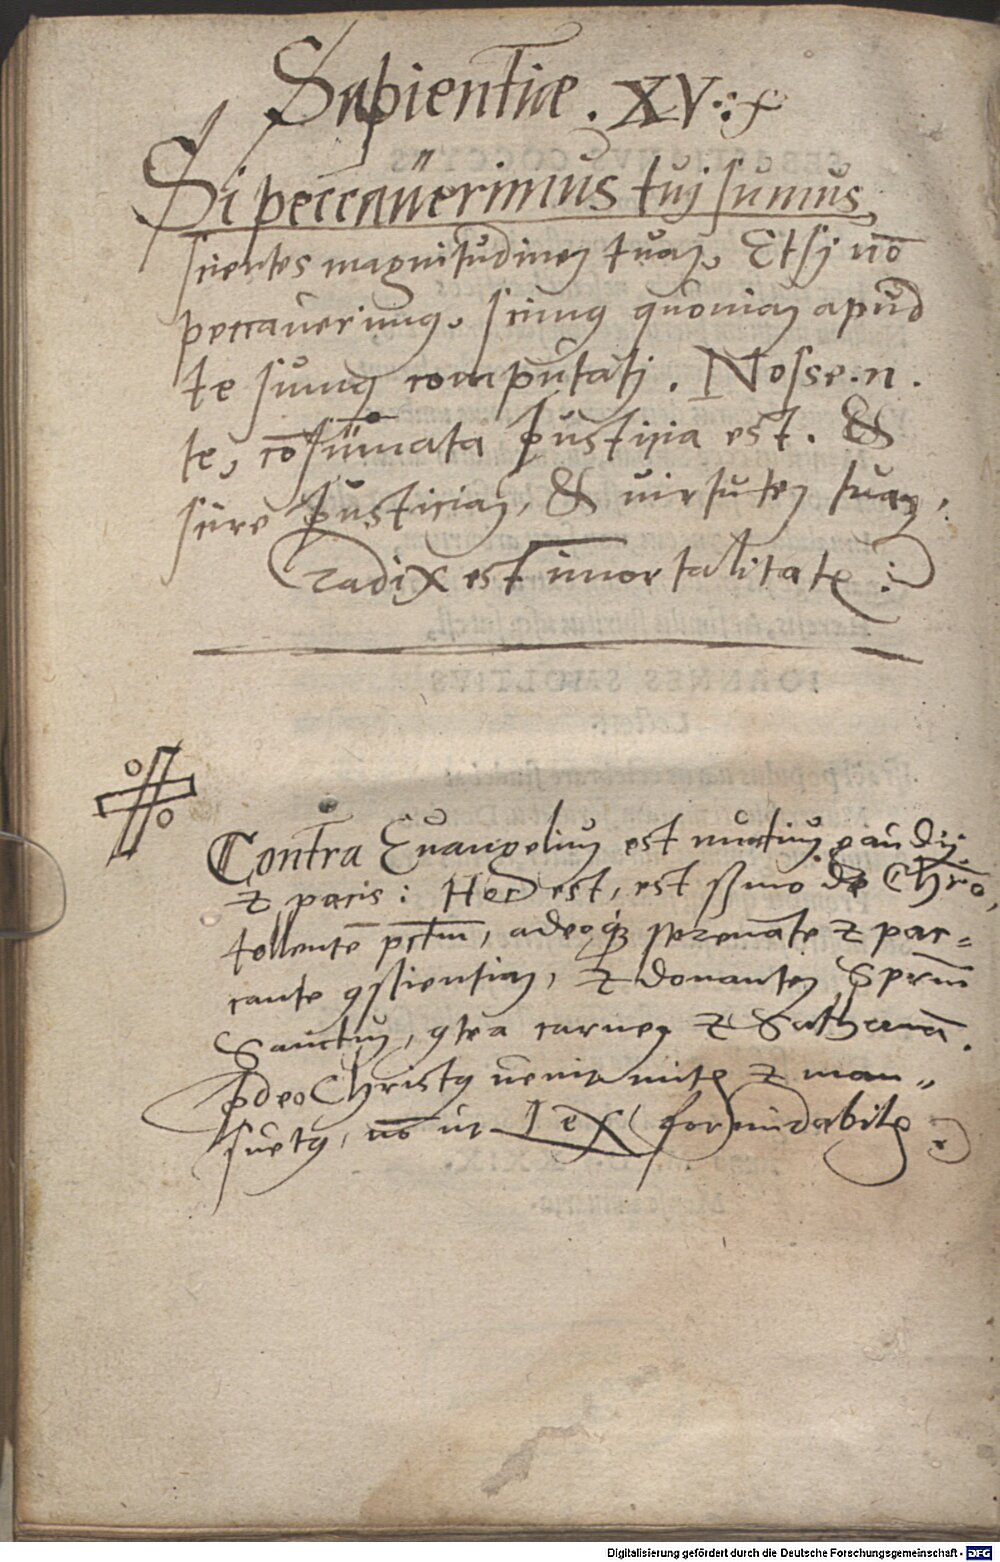 Sapientiæ . XV :
Si peccaverimus tuj sumus,
scientes magnitudinem tuam, Etsj nō
peccaverimus, scimus quoniam apud
te sumus computatj . Nosse .n.
te, cōsūmata Justitia est . &
scire Justiciam, & uirtutem tuam,
radix est īmortalitatis :
IOANNES SMOLTIVS
Contra Evangelium est nuntium gaudij
& pacis : Hoc est, est sermo de Christo,
tollentē pctm, adeoq; serenante & pac=
cante 9scientiam, & donantem Sprm
Sanctum, 9tra carnem & Sathanā.
Ideo Christus uenit mitis & man=
suetus, nō ut lex formidabilis
Digitalisierung gefördert durch die Deutsche Forschungsgemeinschaft - DFG